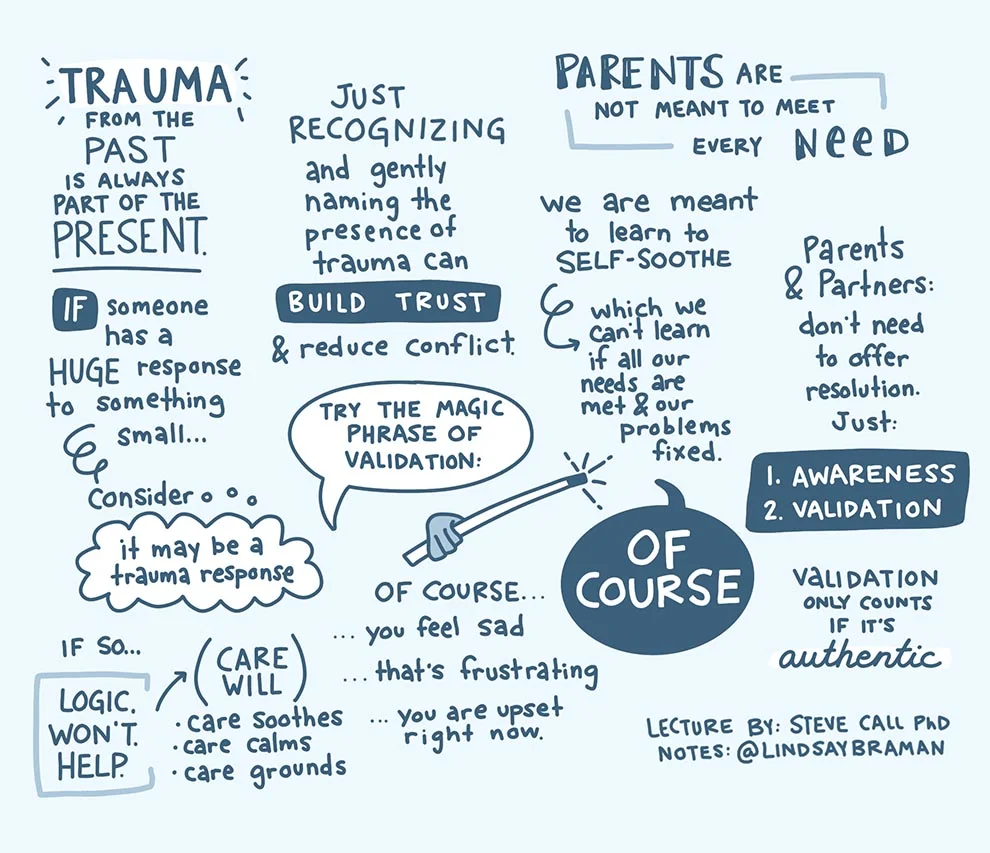 TRAUMA
FROM THE
PAST
IS ALWAYS
PART OF THE
PRESENT.
IF someone
has a
HUGE response
to something
small...
consider
it may be a
trauma response
IF SO...
LOGIC.
WON'T.
HELP.
(CARE
WILL)
· care soothes
· care calms
· care grounds
JUST
RECOGNIZING
and gently
naming the
presence of
trauma can
BUILD TRUST
& reduce conflict.
TRY THE MAGIC
PHRASE OF
VALIDATION:
OF
COURSE
OF COURSE...
... you feel sad
... that's frustrating
... you are upset
right now.
PARENTS ARE
NOT MEANT TO MEET
EVERY NEED
we are meant
to learn to
SELF-SOOTHE
which we
can't learn
if all our
needs are
met & our
problems
fixed.
Parents
& Partners:
don't need
to offer
resolution.
Just:
1. AWARENESS
2. VALIDATION
VALIDATION
ONLY COUNTS
IF IT'S
authentic
LECTURE BY: STEVE CALL PhD
NOTES: @LINDSAYBRAMAN